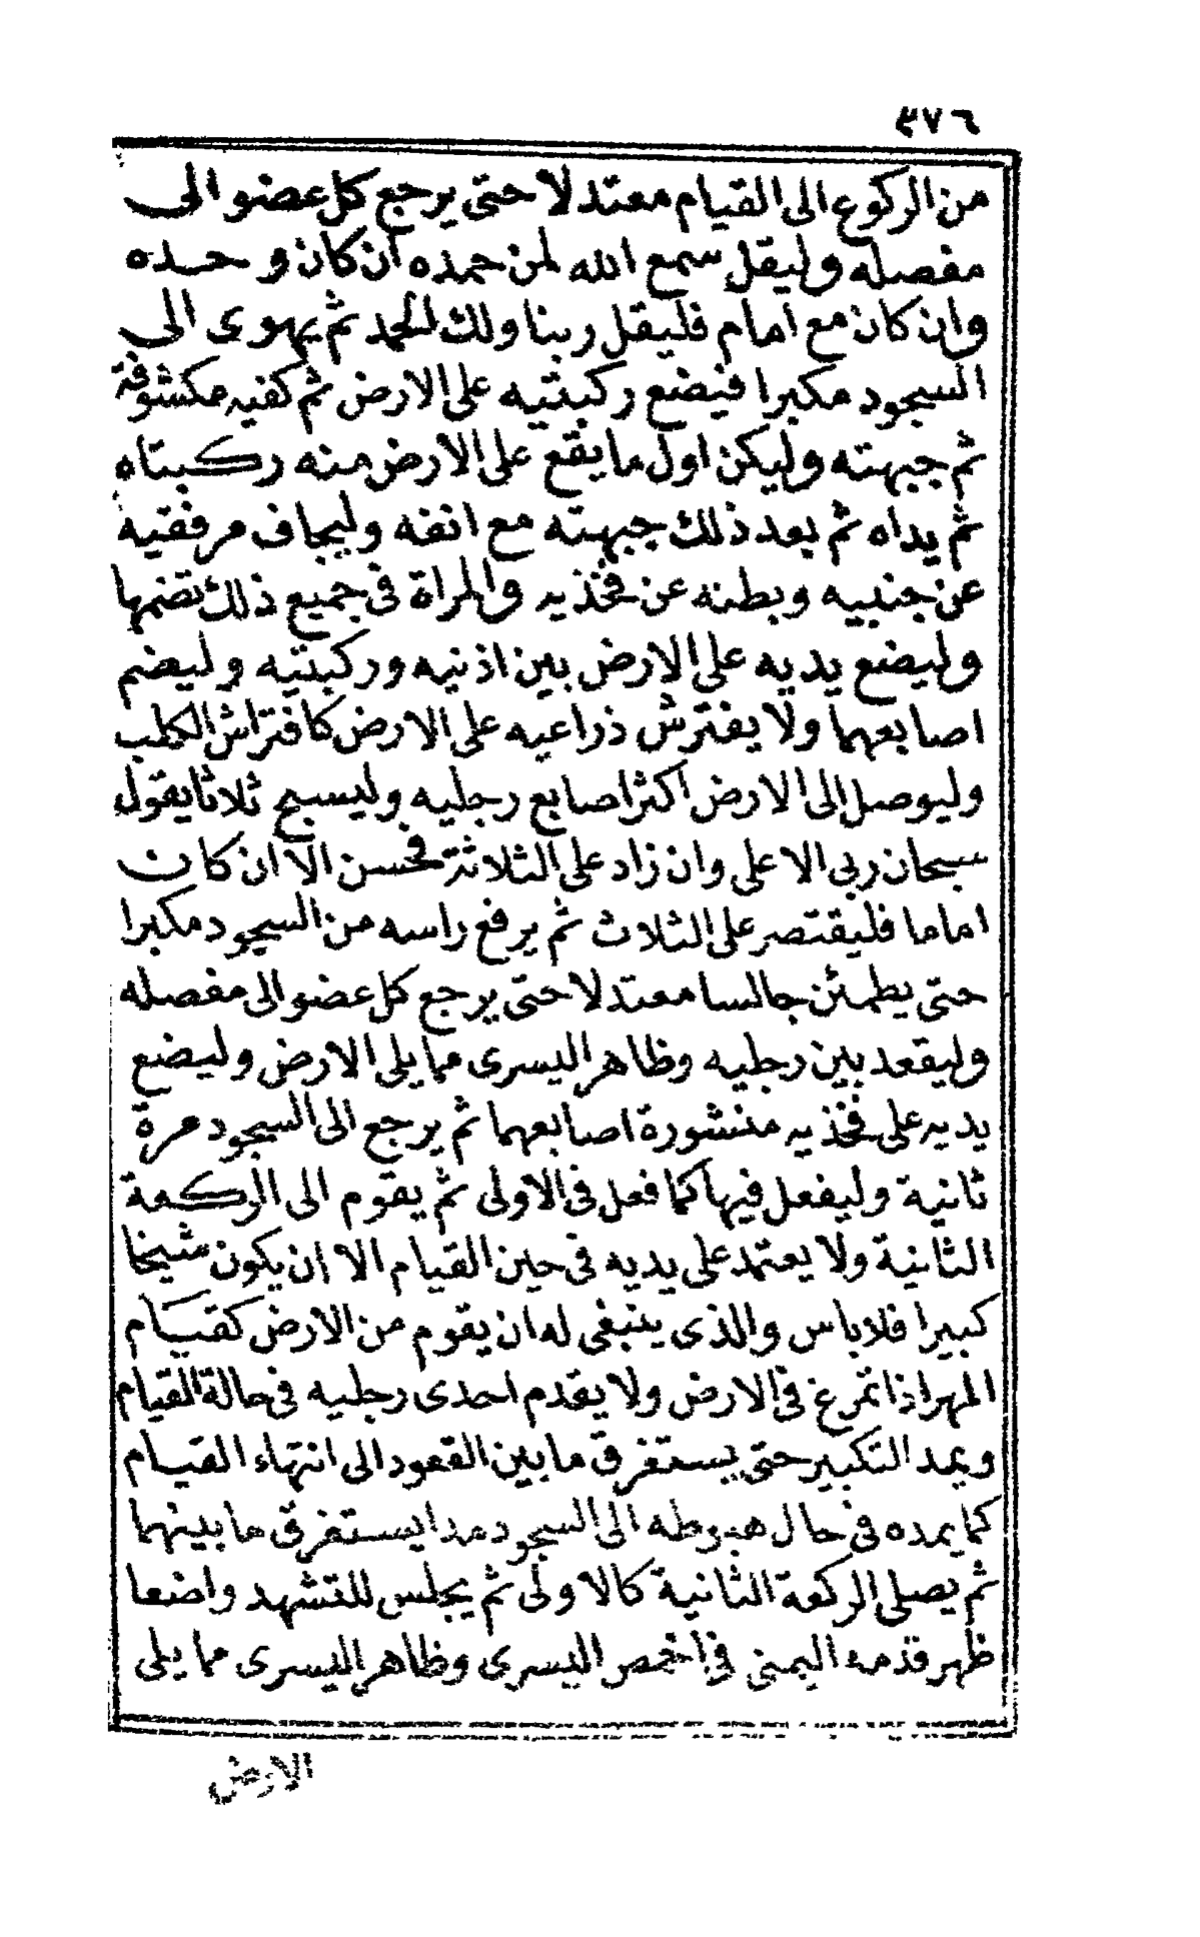 ٣٧٦
من الركوع الى القيام معتدلا حتى يرجع كل عضو الى
مفصله وليقل سمع الله لمن حمده ان كان وحده
وان كان مع امام فليقل ربنا ولك الحمد ثم يهوى الى
السجود مكبرا فيضع ركبتيه على الارض ثم كفيه مكشوفة
ثم جبهته وليكن اول ما يقع على الارض منه ركبتاه
ثم يداه ثم بعد ذلك جبهته مع انفه وليجاف مرفقيه
عن جنبيه وبطنه عن فخذيه والمراة فى جميع ذلك تضمها
وليضع يديه على الارض بين اذنيه وركبتيه وليضم
اصابعهما ولا يفترش ذراعيه على الارض كافتراش الكلب
وليوصل الى الارض اكثر اصابع رجليه وليسبح ثلاثا يقول
سبحان ربى الاعلى وان زاد على الثلاثة فحسن الا ان كان
اماما فليقتصر على الثلاث ثم يرفع راسه من السجود مكبرا
حتى يطمئن جالسا معتدلا حتى يرجع كل عضو الى مفصله
وليقعد بين رجليه وظاهر اليسرى مما يلى الارض وليضع
يديه على فخذيه منشورة اصابعهما ثم يرجع الى السجود مرة
ثانية وليفعل فيها كما فعل فى الاولى ثم يقوم الى الركعة
الثانية ولا يعتمد على يديه فى حين القيام الا ان يكون شيخا
كبيرا فلا باس والذى ينبغى له ان يقوم من الارض كقيام
المهر اذا تمرغ فى الارض ولا يقدم احدى رجليه فى حالة القيام
ويمد التكبير حتى يستغرق ما بين القعود الى انتهاء القيام
كما يمده فى حال هبوطه الى السجود مدا يستغرق ما بينهما
ثم يصلى الركعة الثانية كالاولى ثم يجلس للتشهد واضعا
ظهر قدمه اليمنى فى اخمص اليسرى وظاهر اليسرى مما يلى
الارض